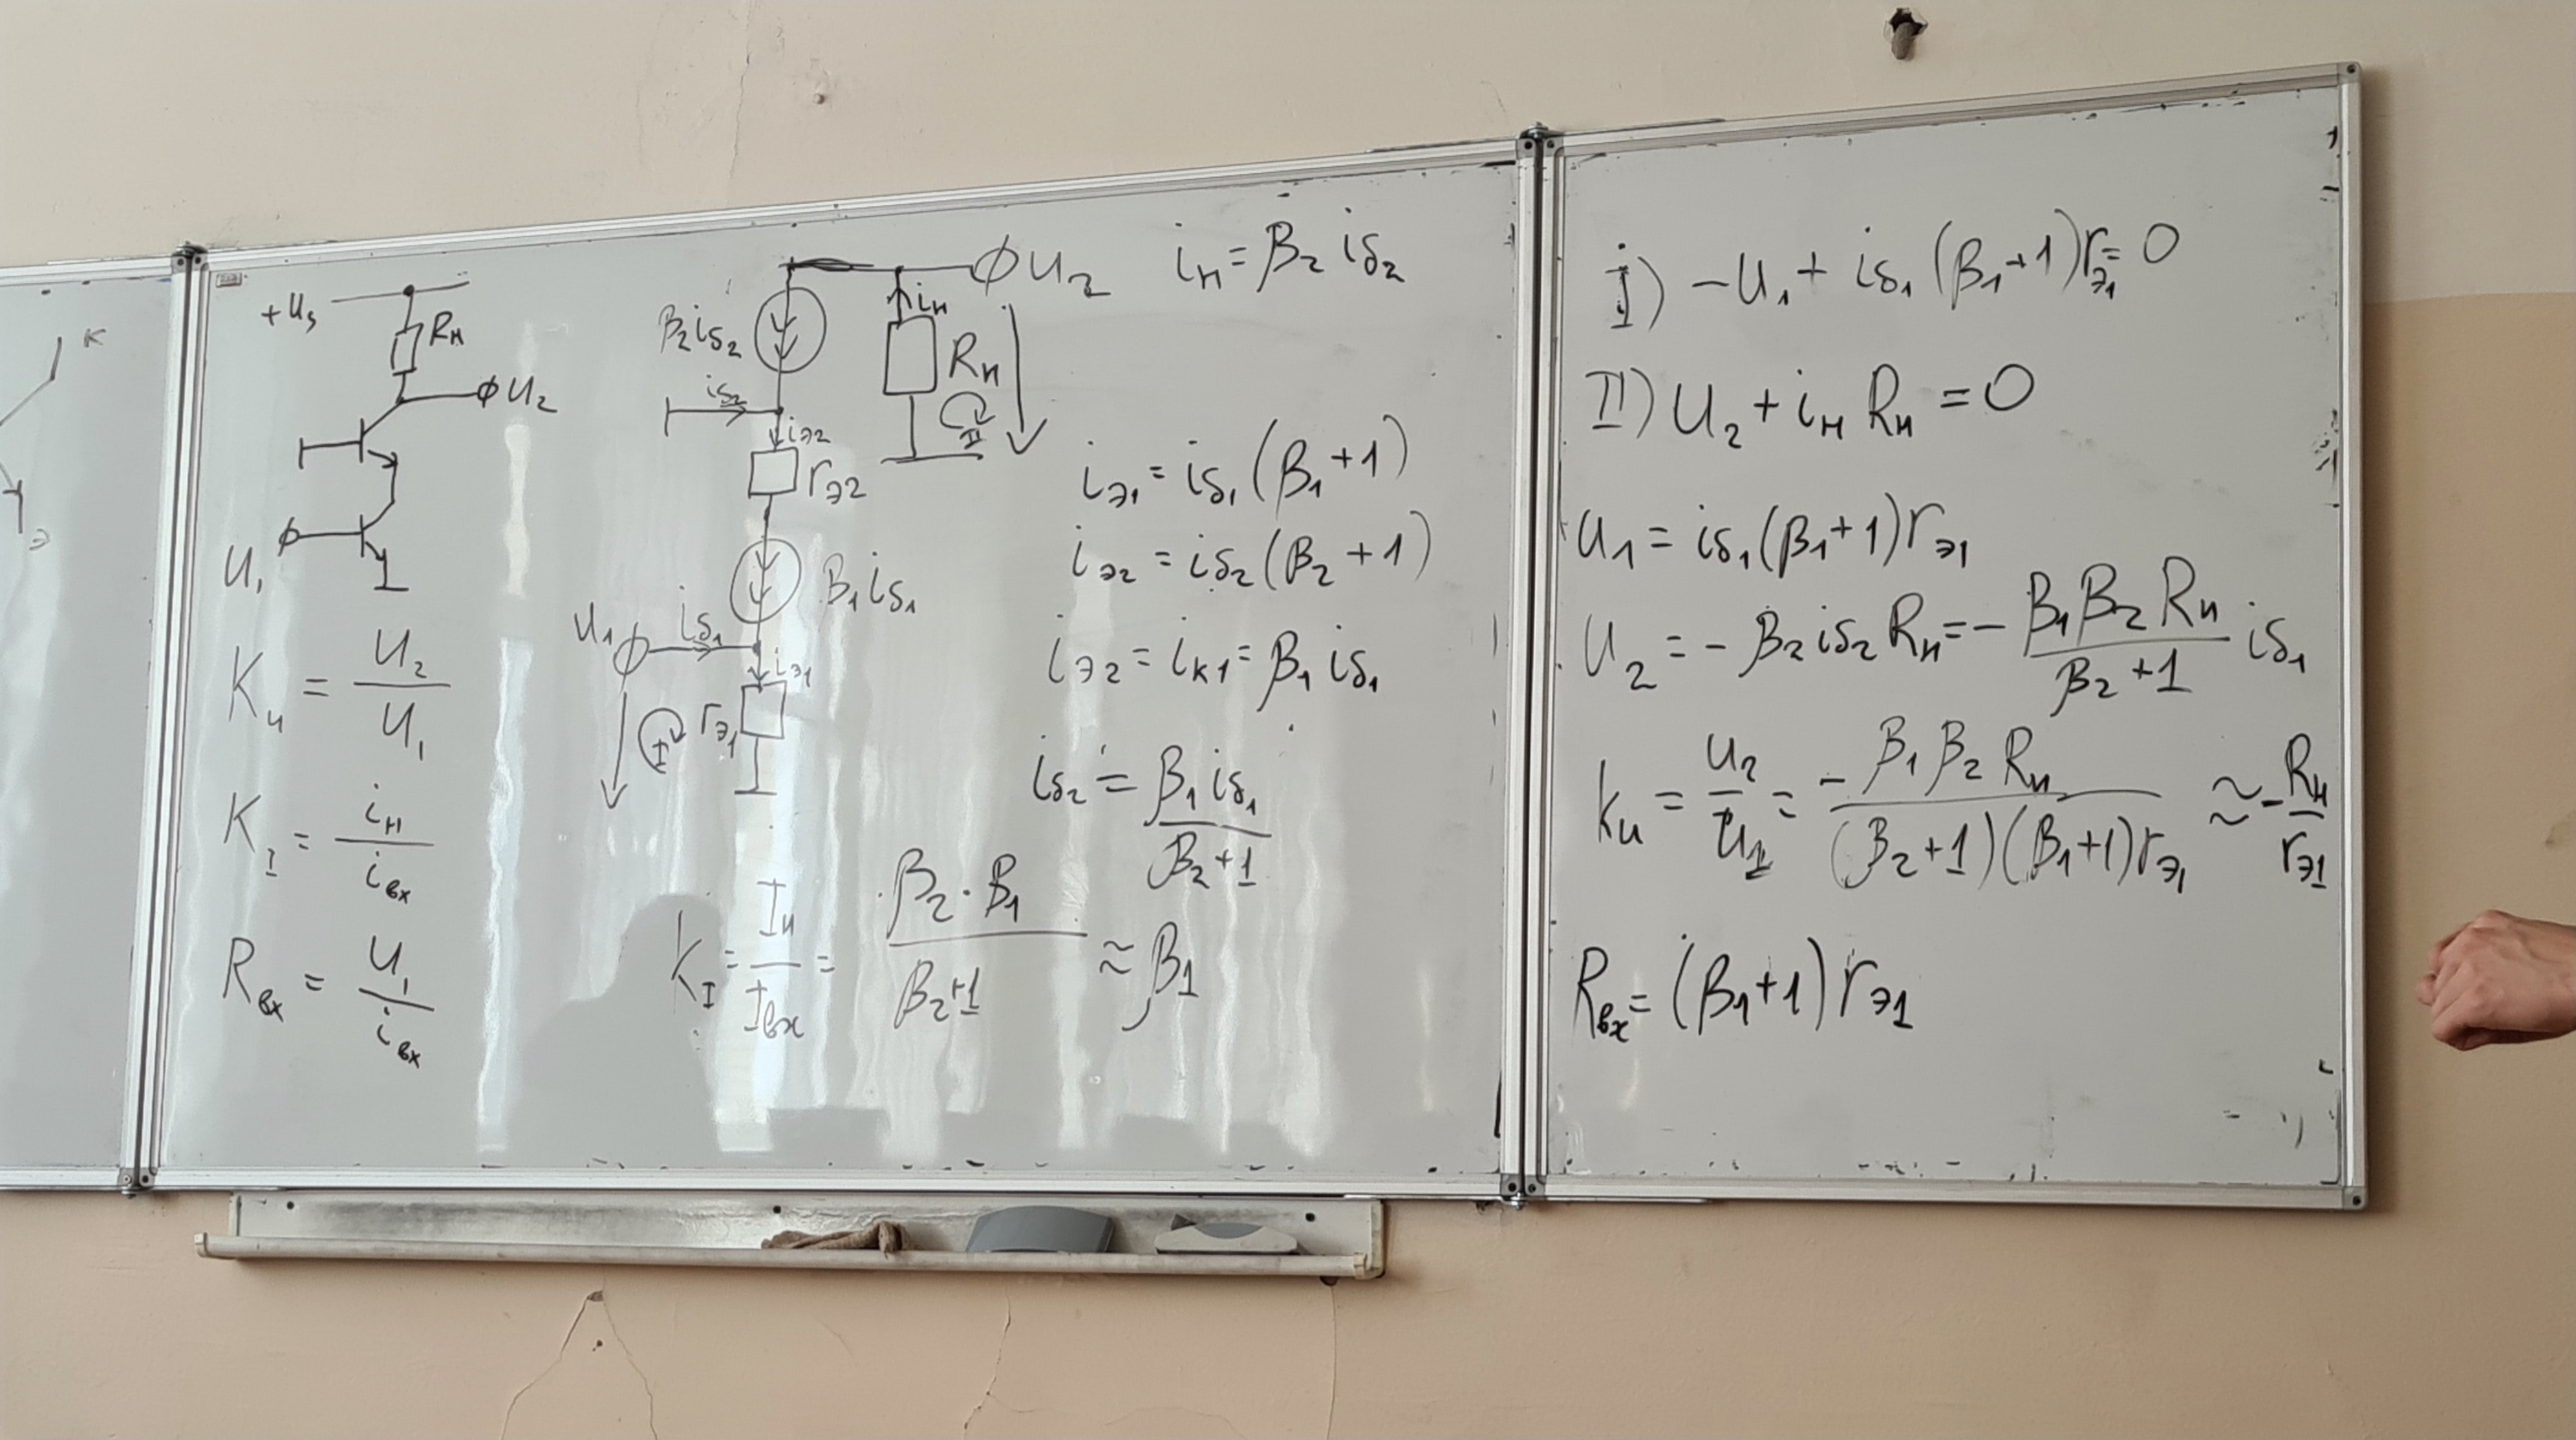 К
Э
+U₃
Rн
U₂
U₁
Kᵤ = U₂ / U₁
K_I = iн / iвх
Rвх = U₁ / iвх
β₂iδ₂
iδ₂
iэ₂
rэ2
β₁iδ₁
U₁
iδ₁
iэ₁
rэ₁
I
U₂
iн
Rн
II
iн = β₂ iδ₂
iэ₁ = iδ₁(β₁+1)
iэ₂ = iδ₂(β₂+1)
iэ2 = iк1 = β₁ iδ₁
iδ₂ = β₁ iδ₁ / β₂+1
K_I = Iн / Iвх = β₂·β₁ / β₂+1 ≈ β1
I) -U₁ + iδ₁(β₁+1)rэ₁ = 0
II) U₂ + iн Rн = 0
U₁ = iδ₁(β₁+1)rэ1
U₂ = -β₂iδ₂Rн = - β₁β₂Rн / β₂+1 iδ₁
Kᵤ = U₂ / U₁ = - β₁β₂Rн / (β₂+1)(β₁+1)rэ₁ ≈ -Rн / rэ1
Rвх = (β₁+1)rэ1